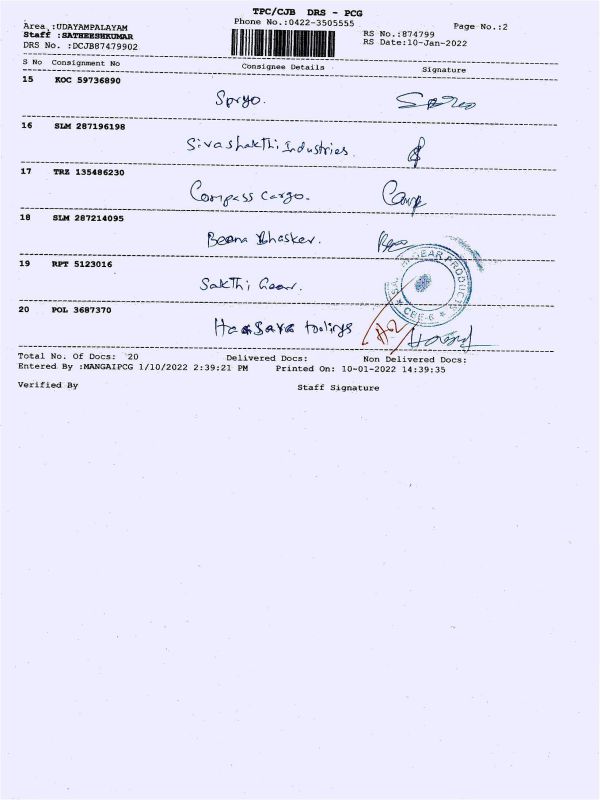 TPC/CJB DRS - PCG
Phone No.:0422-3505555
Page No.:2
Area :UDAYAMPALAYAM
Staff :SATHEESHKUMAR
DRS No. :DCJB87479902
RS No.:874799
RS Date:10-Jan-2022
S No Consignment No Consignee Details Signature
15 KOC 59736890
Spryo.
16 SLM 287196198
Sivashakthi Industries.
17 TRZ 135486230
Compass Cargo.
18 SLM 287214095
Beena Bhasker.
19 RPT 5123016
Sakthi Gear.
GEAR PRODUCTS
CBE-6
20 POL 3687370
toolings
Total No. Of Docs: 20 Delivered Docs: Non Delivered Docs:
Entered By :MANGAIPCG 1/10/2022 2:39:21 PM Printed On: 10-01-2022 14:39:35
Verified By Staff Signature